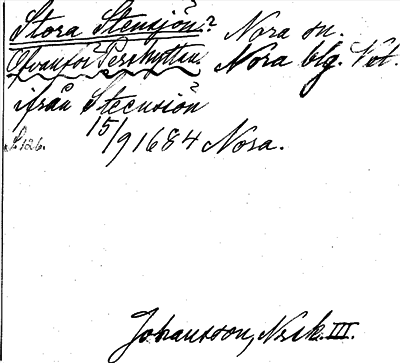 Stora Stensjön? Nora sn.
Ofvanför Pershyttan Nora blg. Vet.
ifrån Steensiön
15/9 1684 Nora.
s. 126.
Johansson, Noraskog III.